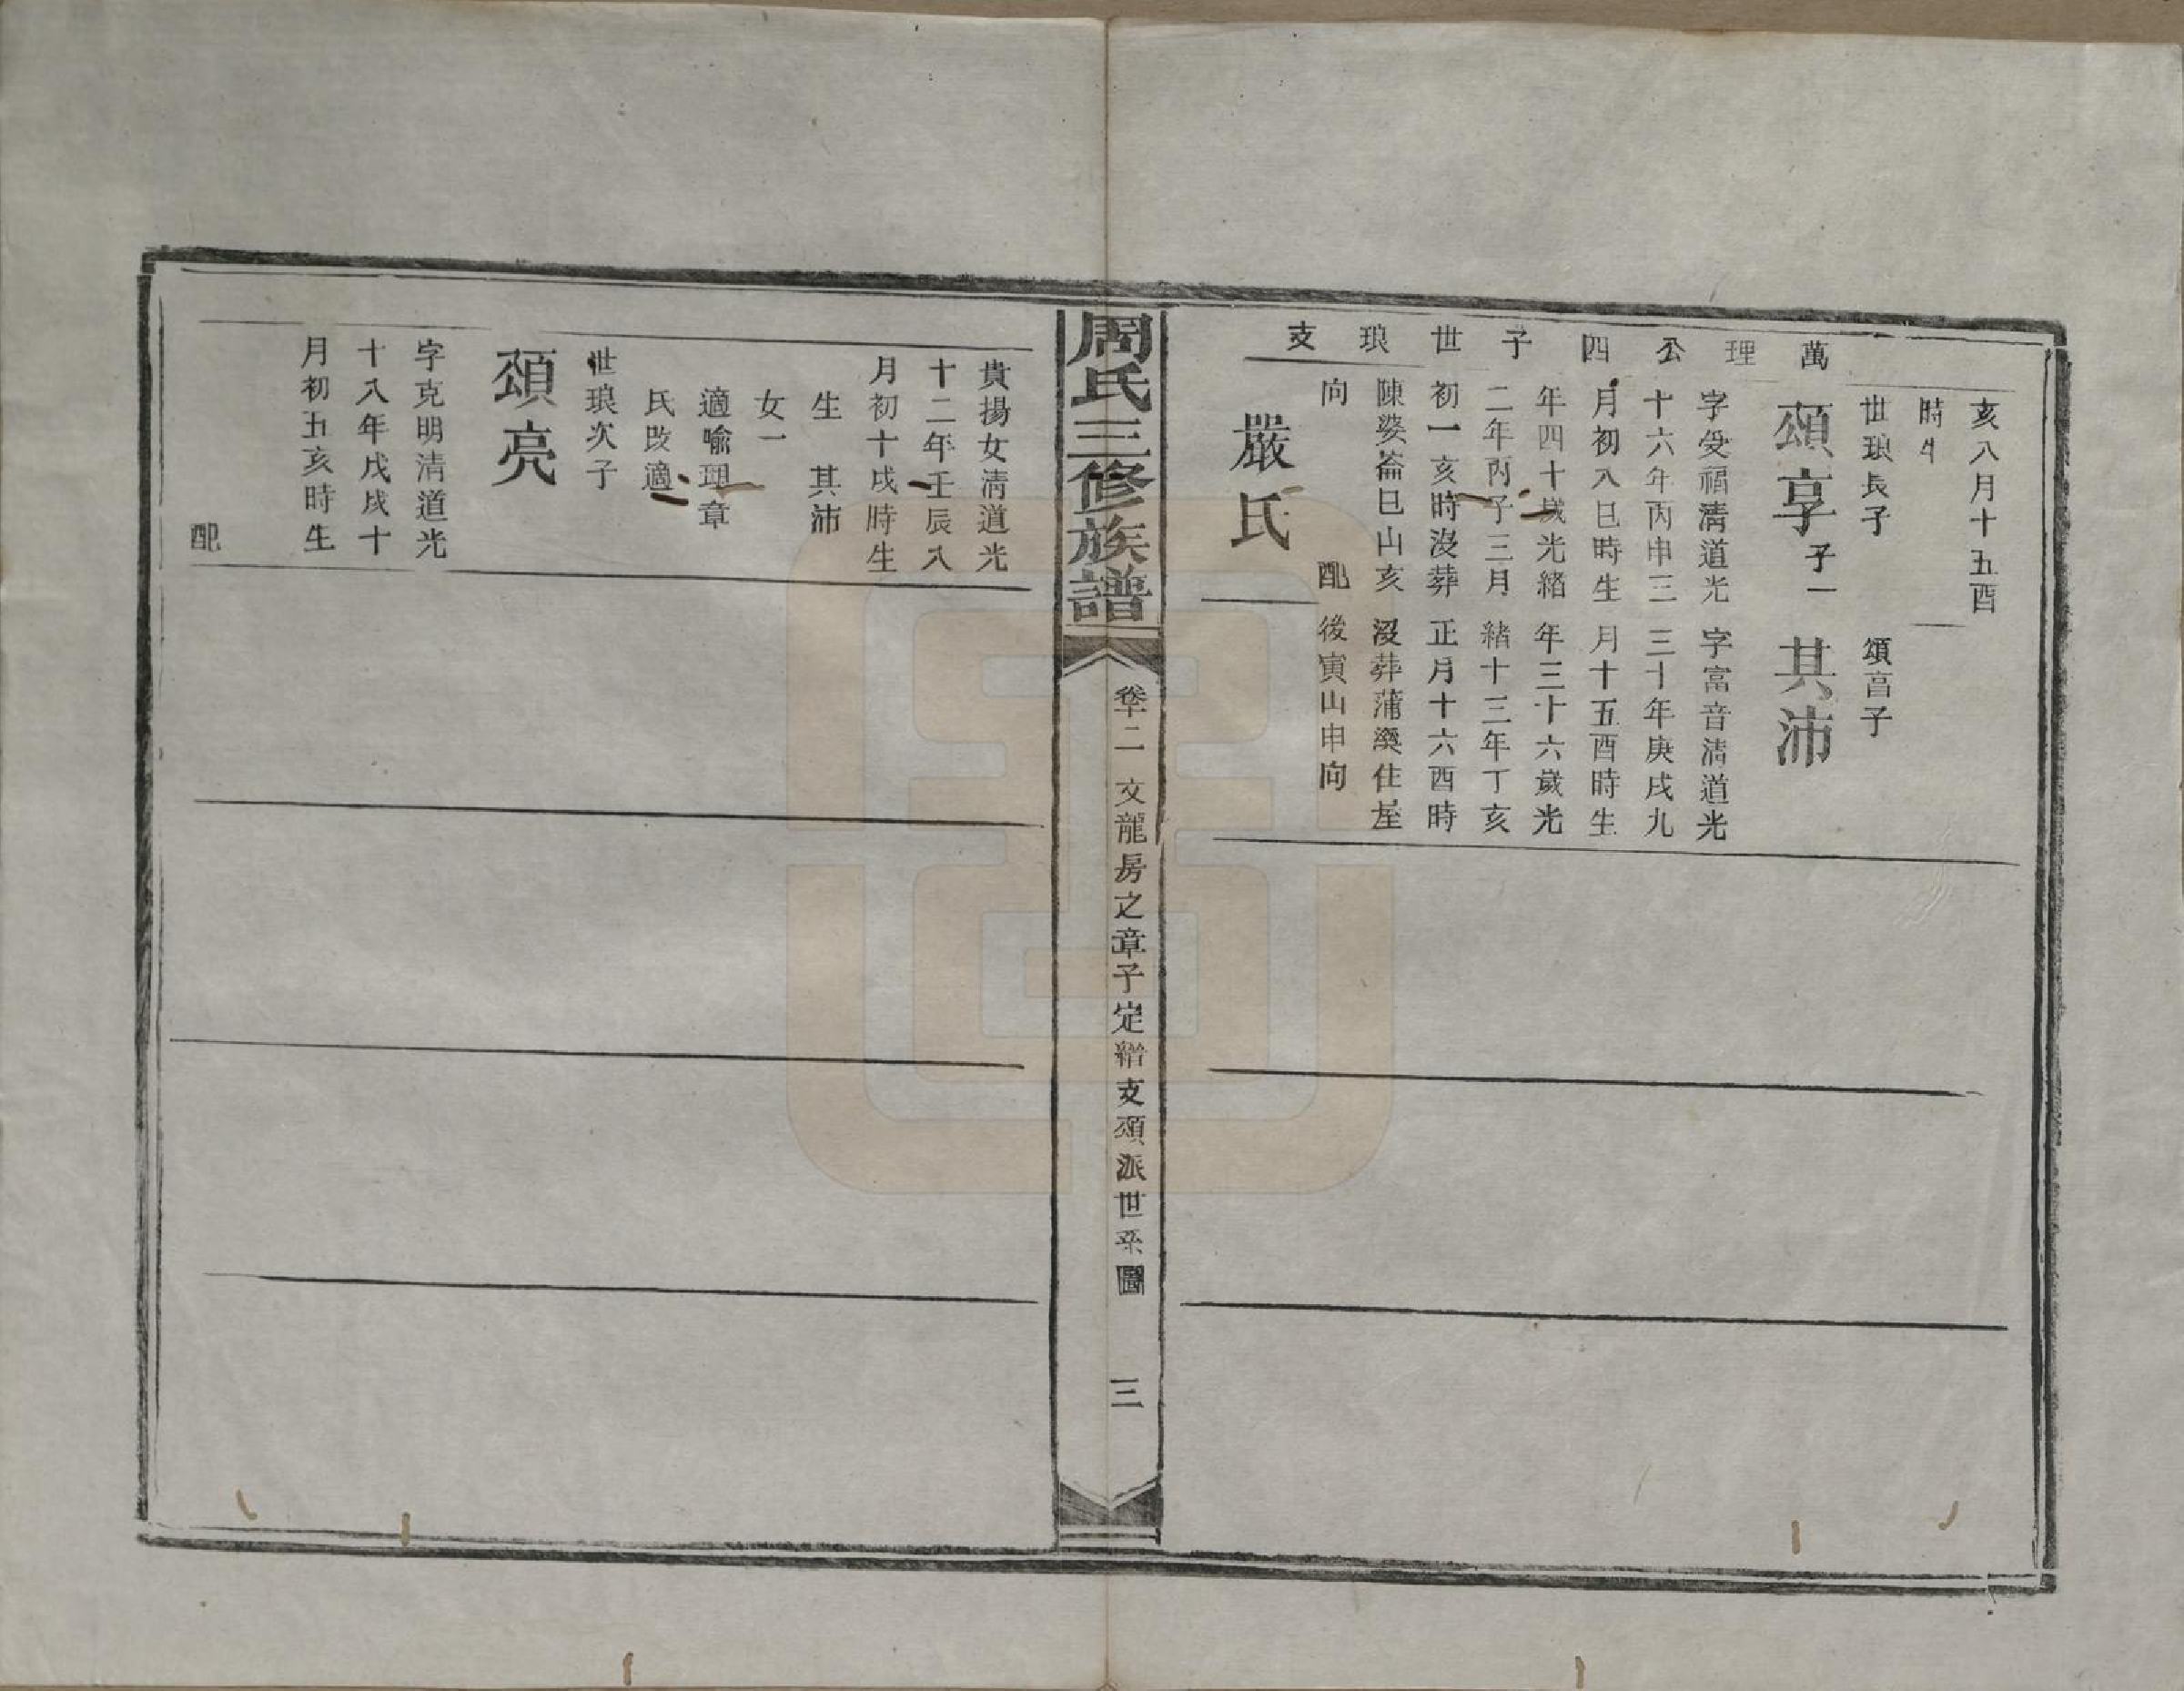 萬理公四子世琅支
亥八月十五酉
時生
世琅長子
頌享子一
字受福清道光
十六年丙申三
月初八巳時生
年四十歲光緒
二年丙子三月
初一亥時沒葬
陳婆崙巳山亥
向　配
嚴氏
頌高子
其沛
字富音清道光
三十年庚戌九
月十五酉時生
年三十六歲光
緒十三年丁亥
正月十六酉時
沒葬蒲塽住屋
後寅山申向
周氏三修族譜
卷十二　文龍房之章子定縉支頌派世系圖　三
貴揚女清道光
十二年壬辰八
月初十戌時生
生　其沛
女一
適喻理章
氏改適
世琅次子
頌亮
字克明清道光
十八年戊戌十
月初五亥時生
配